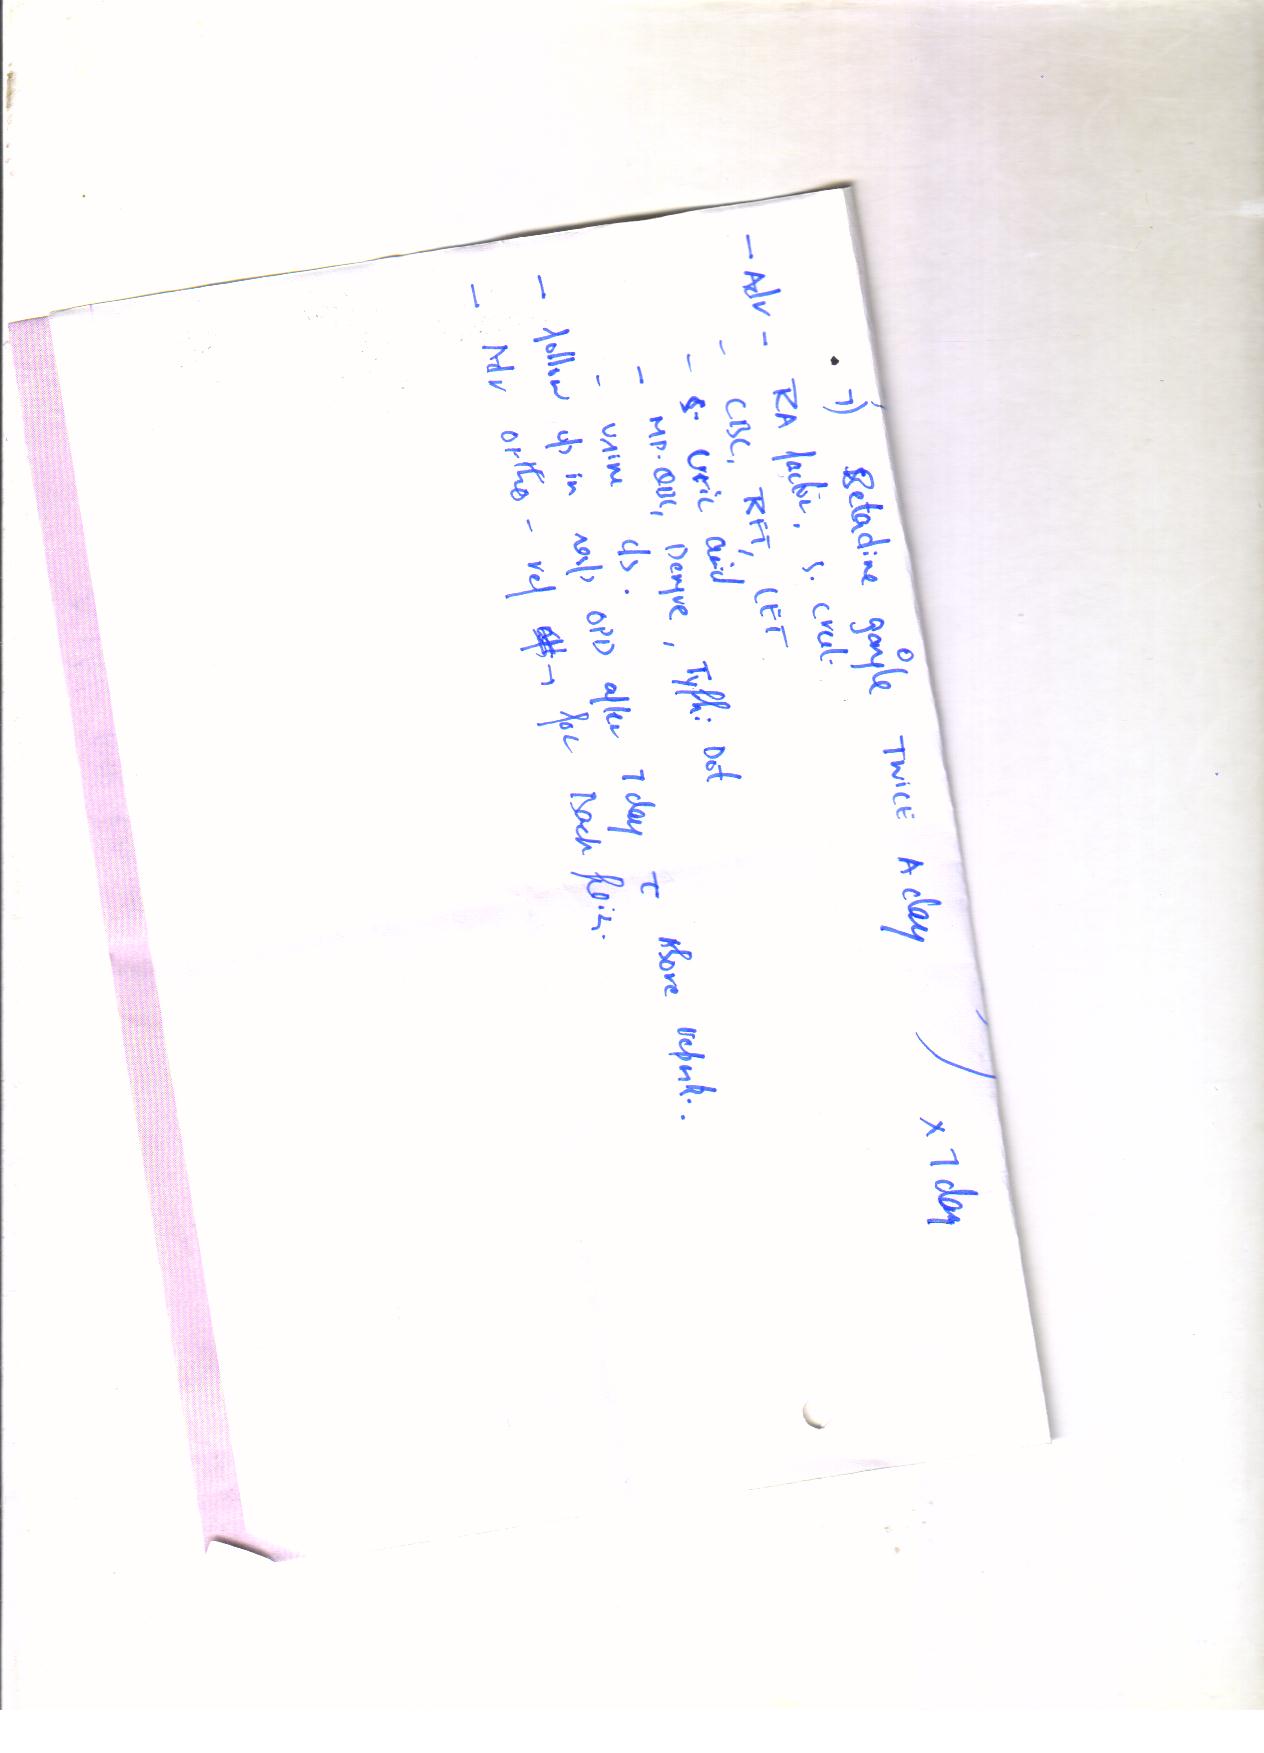 7) Betadine gargle TWICE A day x 7 day
- Adv - RA factor, S. creat.
- CBC, RFT, LFT
- S. Uric acid
- MP. QBC, Dengue, Typhi Dot
- Urine c/s.
- follow up in resp OPD after 7 day c Above report..
- Adv ortho - ref for Back pain.